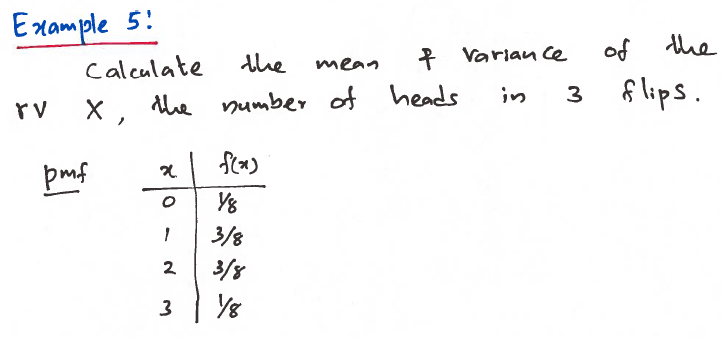 Example 5:
Calculate the mean & variance of the
rv X, the number of heads in 3 flips.
pmf x f(x)
0 1/8
1 3/8
2 3/8
3 1/8